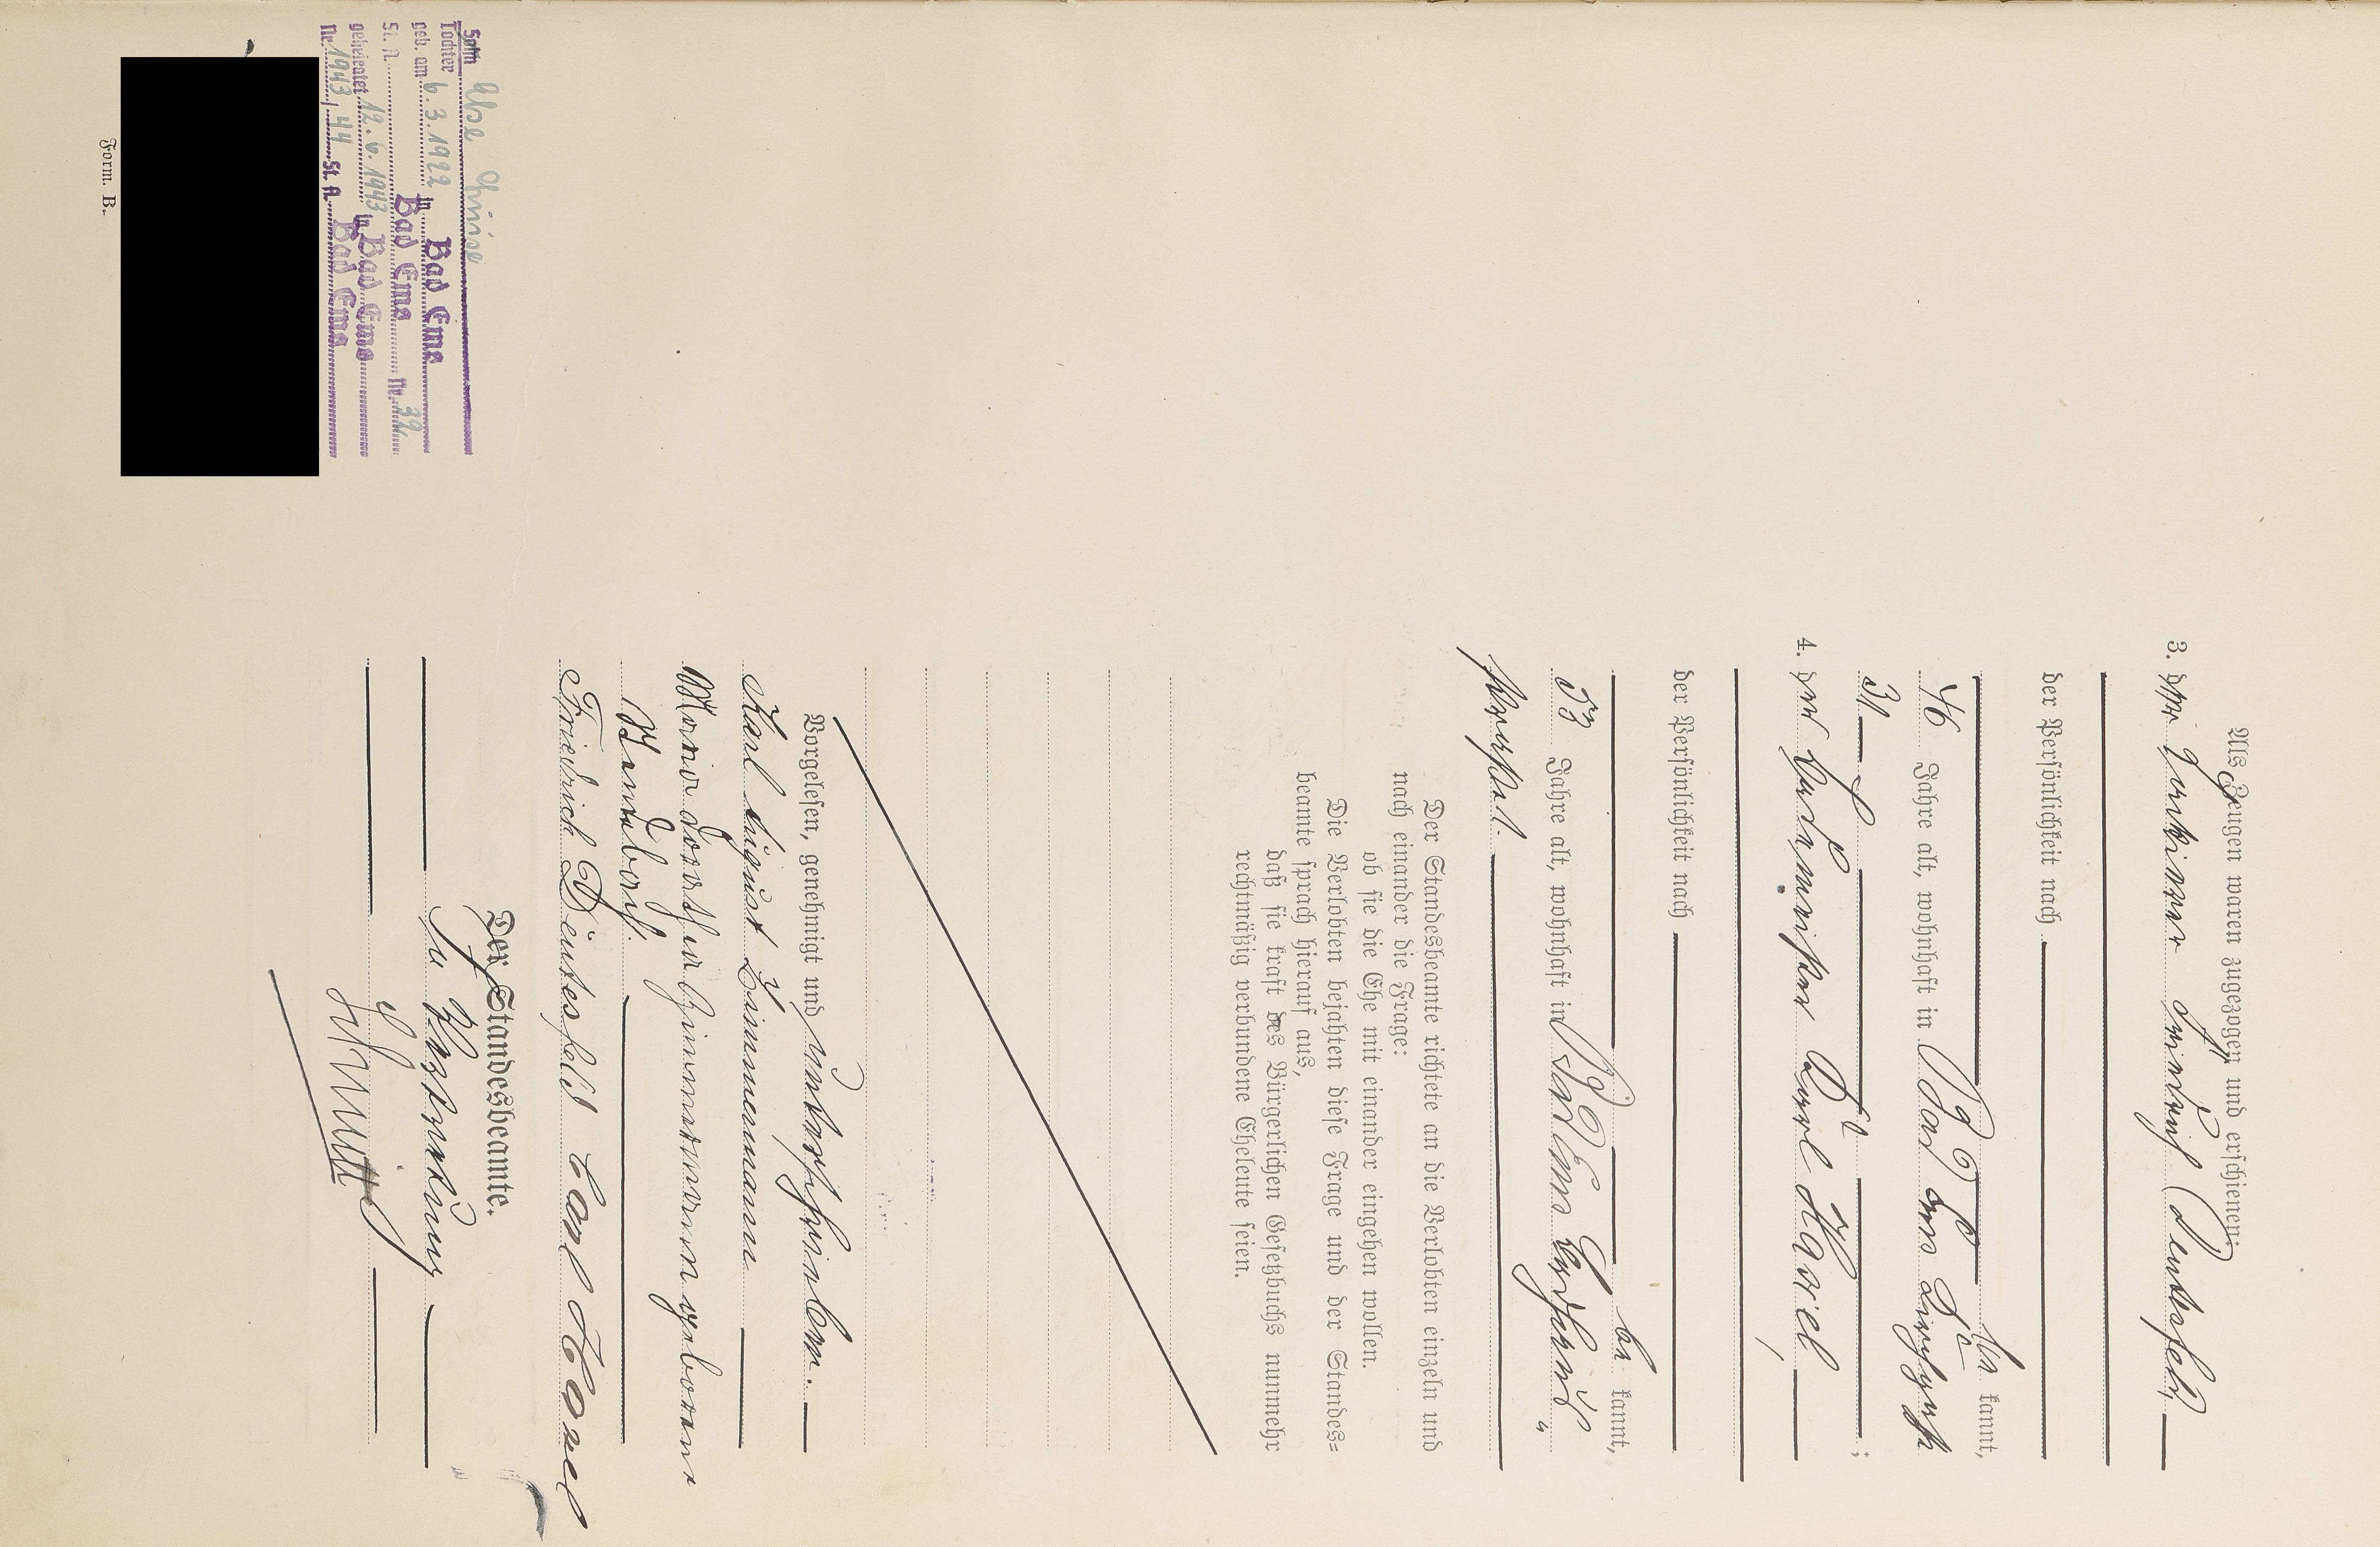 Als Zeugen waren zugezogen und erschienen:
3. der Gärtner Friedrich Deutesfeld
der Persönlichkeit nach
kannt,
46 Jahre alt, wohnhaft in Bad Ems
31
4. der Carl Hasiel
der Persönlichkeit nach
be kannt,
53 Jahre alt, wohnhaft in Bad Ems
Der Standesbeamte richtete an die Verlobten einzeln und
nach einander die Frage:
ob sie die Ehe mit einander eingehen wollen.
Die Verlobten bejahten diese Frage und der Standes=
beamte sprach hierauf aus,
daß sie kraft des Bürgerlichen Gesetzbuchs nunmehr
rechtmäßig verbundene Eheleute seien.
Vorgelesen, genehmigt und unterschrieben.
Karl August Zimmermann
Zimmermann geborene
Friedrich Deutesfeld Carl Hasiel
Der Standesbeamte.
In Vertretung
Schmitt
Sohn
Tochter Else Luise
geb. am 6.3.1922 in Bad Ems
St. A. Bad Ems Nr. 32
geheiratet 12.6.1943 in Bad Ems
Nr. 1943, 44 St. A. Bad Ems
Form. B.